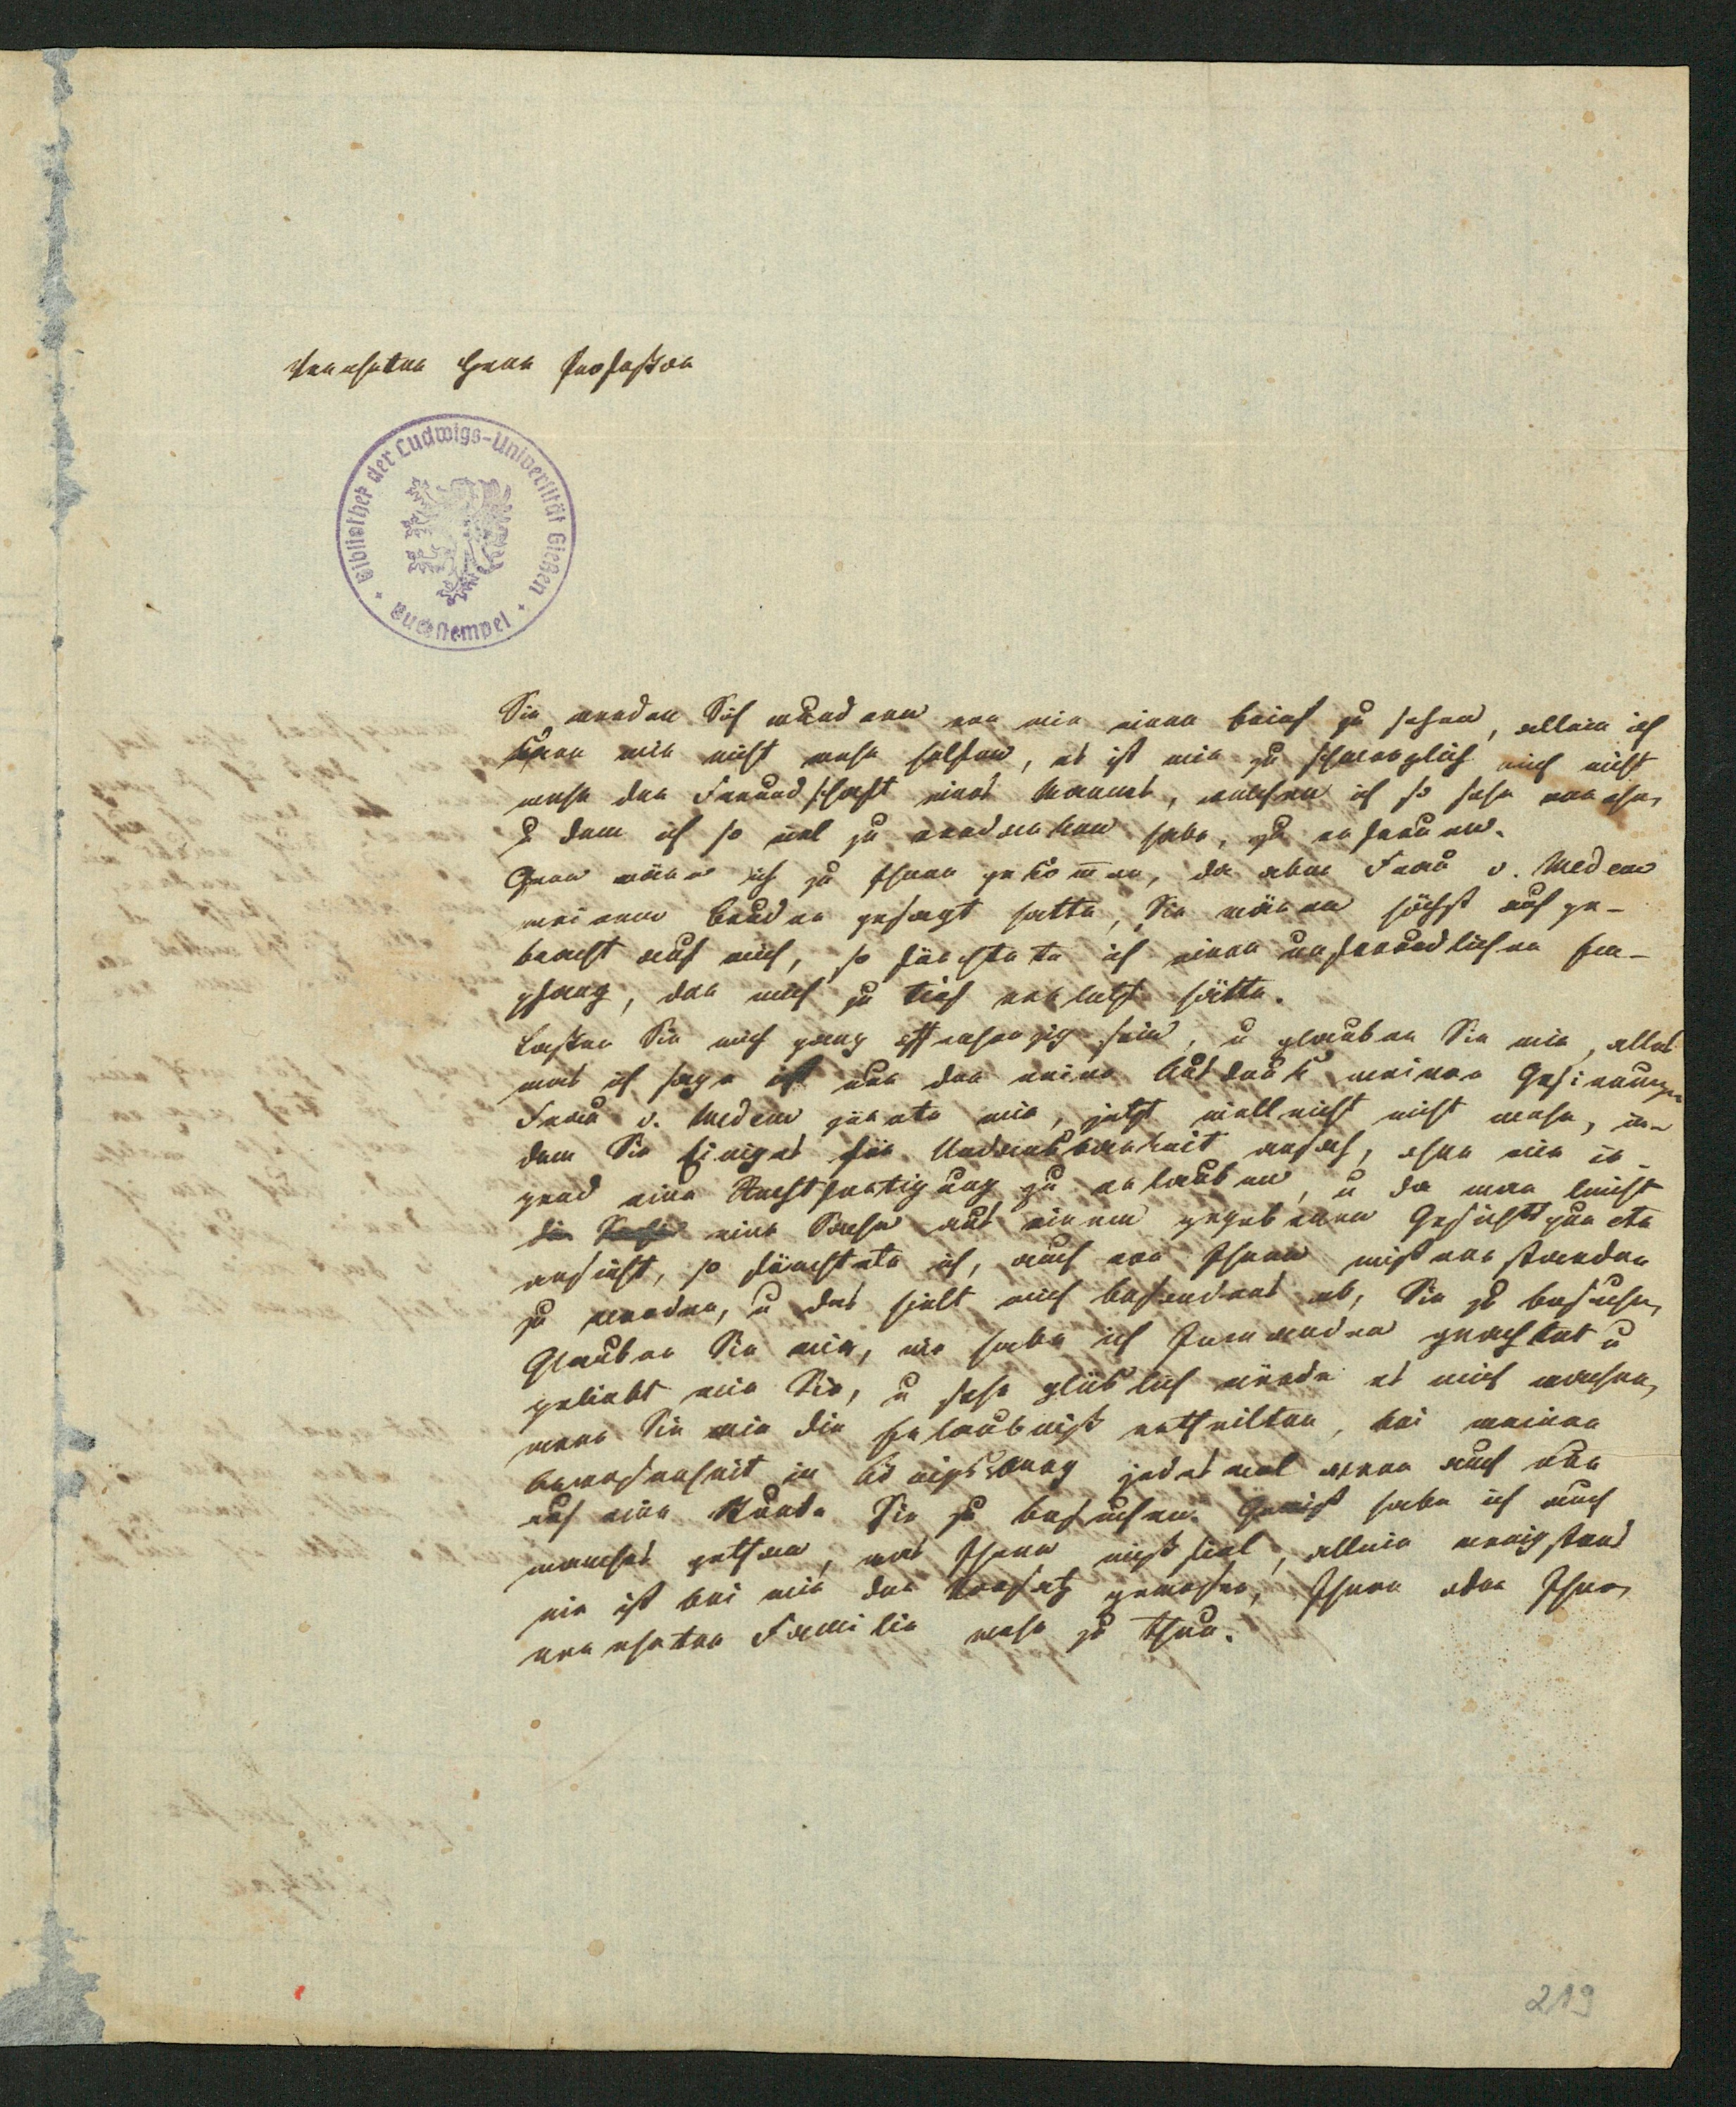 Verehrter Herr Professor
Bibliothek der Ludwigs-Universität Gießen
Buchstempel
Sie werden Sich wundern von mir einen Brief zu sehen, allein ich
kann mir nicht mehr helfen, es ist mir zu schmerzlich mich nicht
mehr der Freundschaft eines Mannes, welchen ich so sehr verehre,
u dem ich so viel zu verdanken habe, zu erfreuen.
Gern wäre ich zu Ihnen gekom̄en, da aber Frau v. Medem
meinem Bruder gesagt hatte, Sie wären höchst aufge-
bracht auf mich, so fürchtete ich einen unfreundlichen Em-
pfang, der mich zu tief verletzt hätte.
Laßen Sie mich ganz offenherzig sein, u glauben Sie mir, alles
was ich sage ist nur der reine Ausdruck meiner Gesinnungen
Frau v. Medem zürnte mir, jetzt vielleicht nicht mehr, in-
dem Sie Einiges für Undankbarkeit ansah, ohne mir ir-
gend eine Rechtfertigung zu erlauben, u da man leicht
die eine Sache aus einem gegebenen Gesichtspuncte
ansieht, so fürchtete ich, auch von Ihnen mißverstanden
zu werden, u das hielt mich besonders ab, Sie zu besuchen,
Glauben Sie mir, nie habe ich Jemanden geachtet u
geliebt wie Sie, u sehr glücklich würde es mich machen,
wenn Sie mir die Erlaubniß ertheilten, bei meiner
Anwesenheit in Königsberg jedesmal wenn auch nur
auf eine Stunde Sie zu besuchen. Gewiß habe ich auch
manches gethan, was Ihnen mißfiel, allein wenigstens
nie ist bei mir der Vorsatz gewesen, Ihnen oder Ihrer
verehrten Familie wehe zu thun.
219